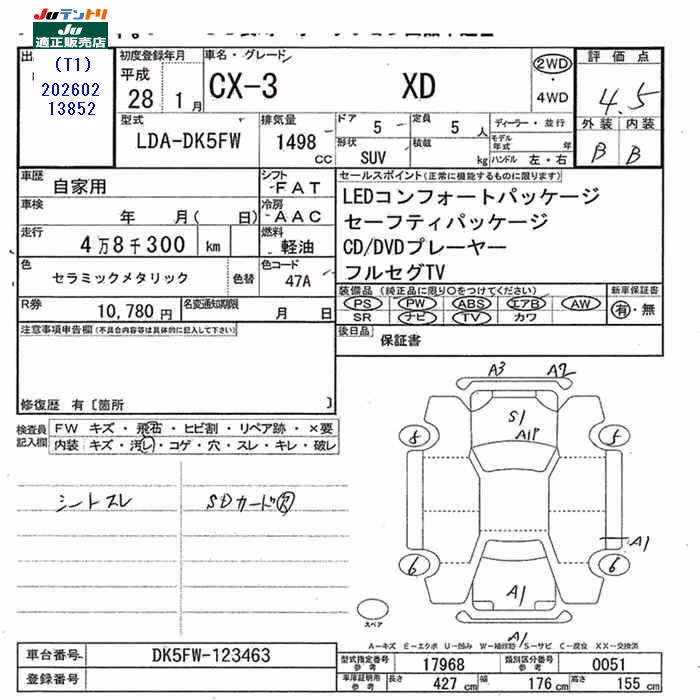 JUテントリ
JU
適正販売店
(T1)
202602
13852
初度登録年月
平成
28 1月
車名・グレード
CX-3 XD
2WD
4WD
評価点
4.5
外装 内装
B B
型式
LDA-DK5FW
排気量
1498
cc
ドア 5
定員 5 人
形状
SUV
積載
kg
ディーラー・並行
モデル
年式 年
ハンドル 左・右
車歴
自家用
シフト
FAT
車検
年 月( 日)
冷房
AAC
走行
4万8千300 km
燃料
軽油
色
セラミックメタリック
色替
色コード
47A
R券
10,780円
名変通知期限
月 日
セールスポイント(正常に機能するものに限ります)
LEDコンフォートパッケージ
セーフティパッケージ
CD/DVDプレーヤー
フルセグTV
装備品(純正品に限り○をつけてください)
新車保証書
PS PW ABS エアB AW
SR ナビ TV カワ
有・無
後日品
保証書
注意事項申告欄(不具合内容等は具体的に記入して下さい)
修復歴 有〔箇所 〕
検査員
記入欄
FW キズ・飛石・ヒビ割・リペア跡・×要
内装 キズ・汚レ・コゲ・穴・スレ・キレ・破レ
シートスレ
SDカード欠
A3 A2
S1
A1P
8 5
A1
6 6
A1
A1
スペア
A-キズ E-エクボ U-凹み W-補修跡 S-サビ C-腐食 XX-交換済
車台番号
DK5FW-123463
登録番号
型式指定番号
参考
17968
類別区分番号
参考
0051
車庫証明用
参考
長さ 427 cm
幅 176 cm
高さ 155 cm